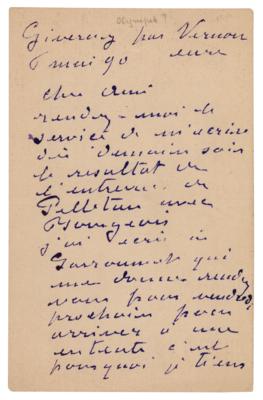 Olympia ?
Giverny par Vernon
7 mai 90 eure
cher ami
rendez-moi le
service de m'écrire
dès demain soir
le resultat de
l'entrevue de
Pelletan avec
Bourgeois
j'ai écrit à
qui
me donne rendez
vous pour vendredi
prochain pour
arriver à une
entente c'est
pourquoi je tiens